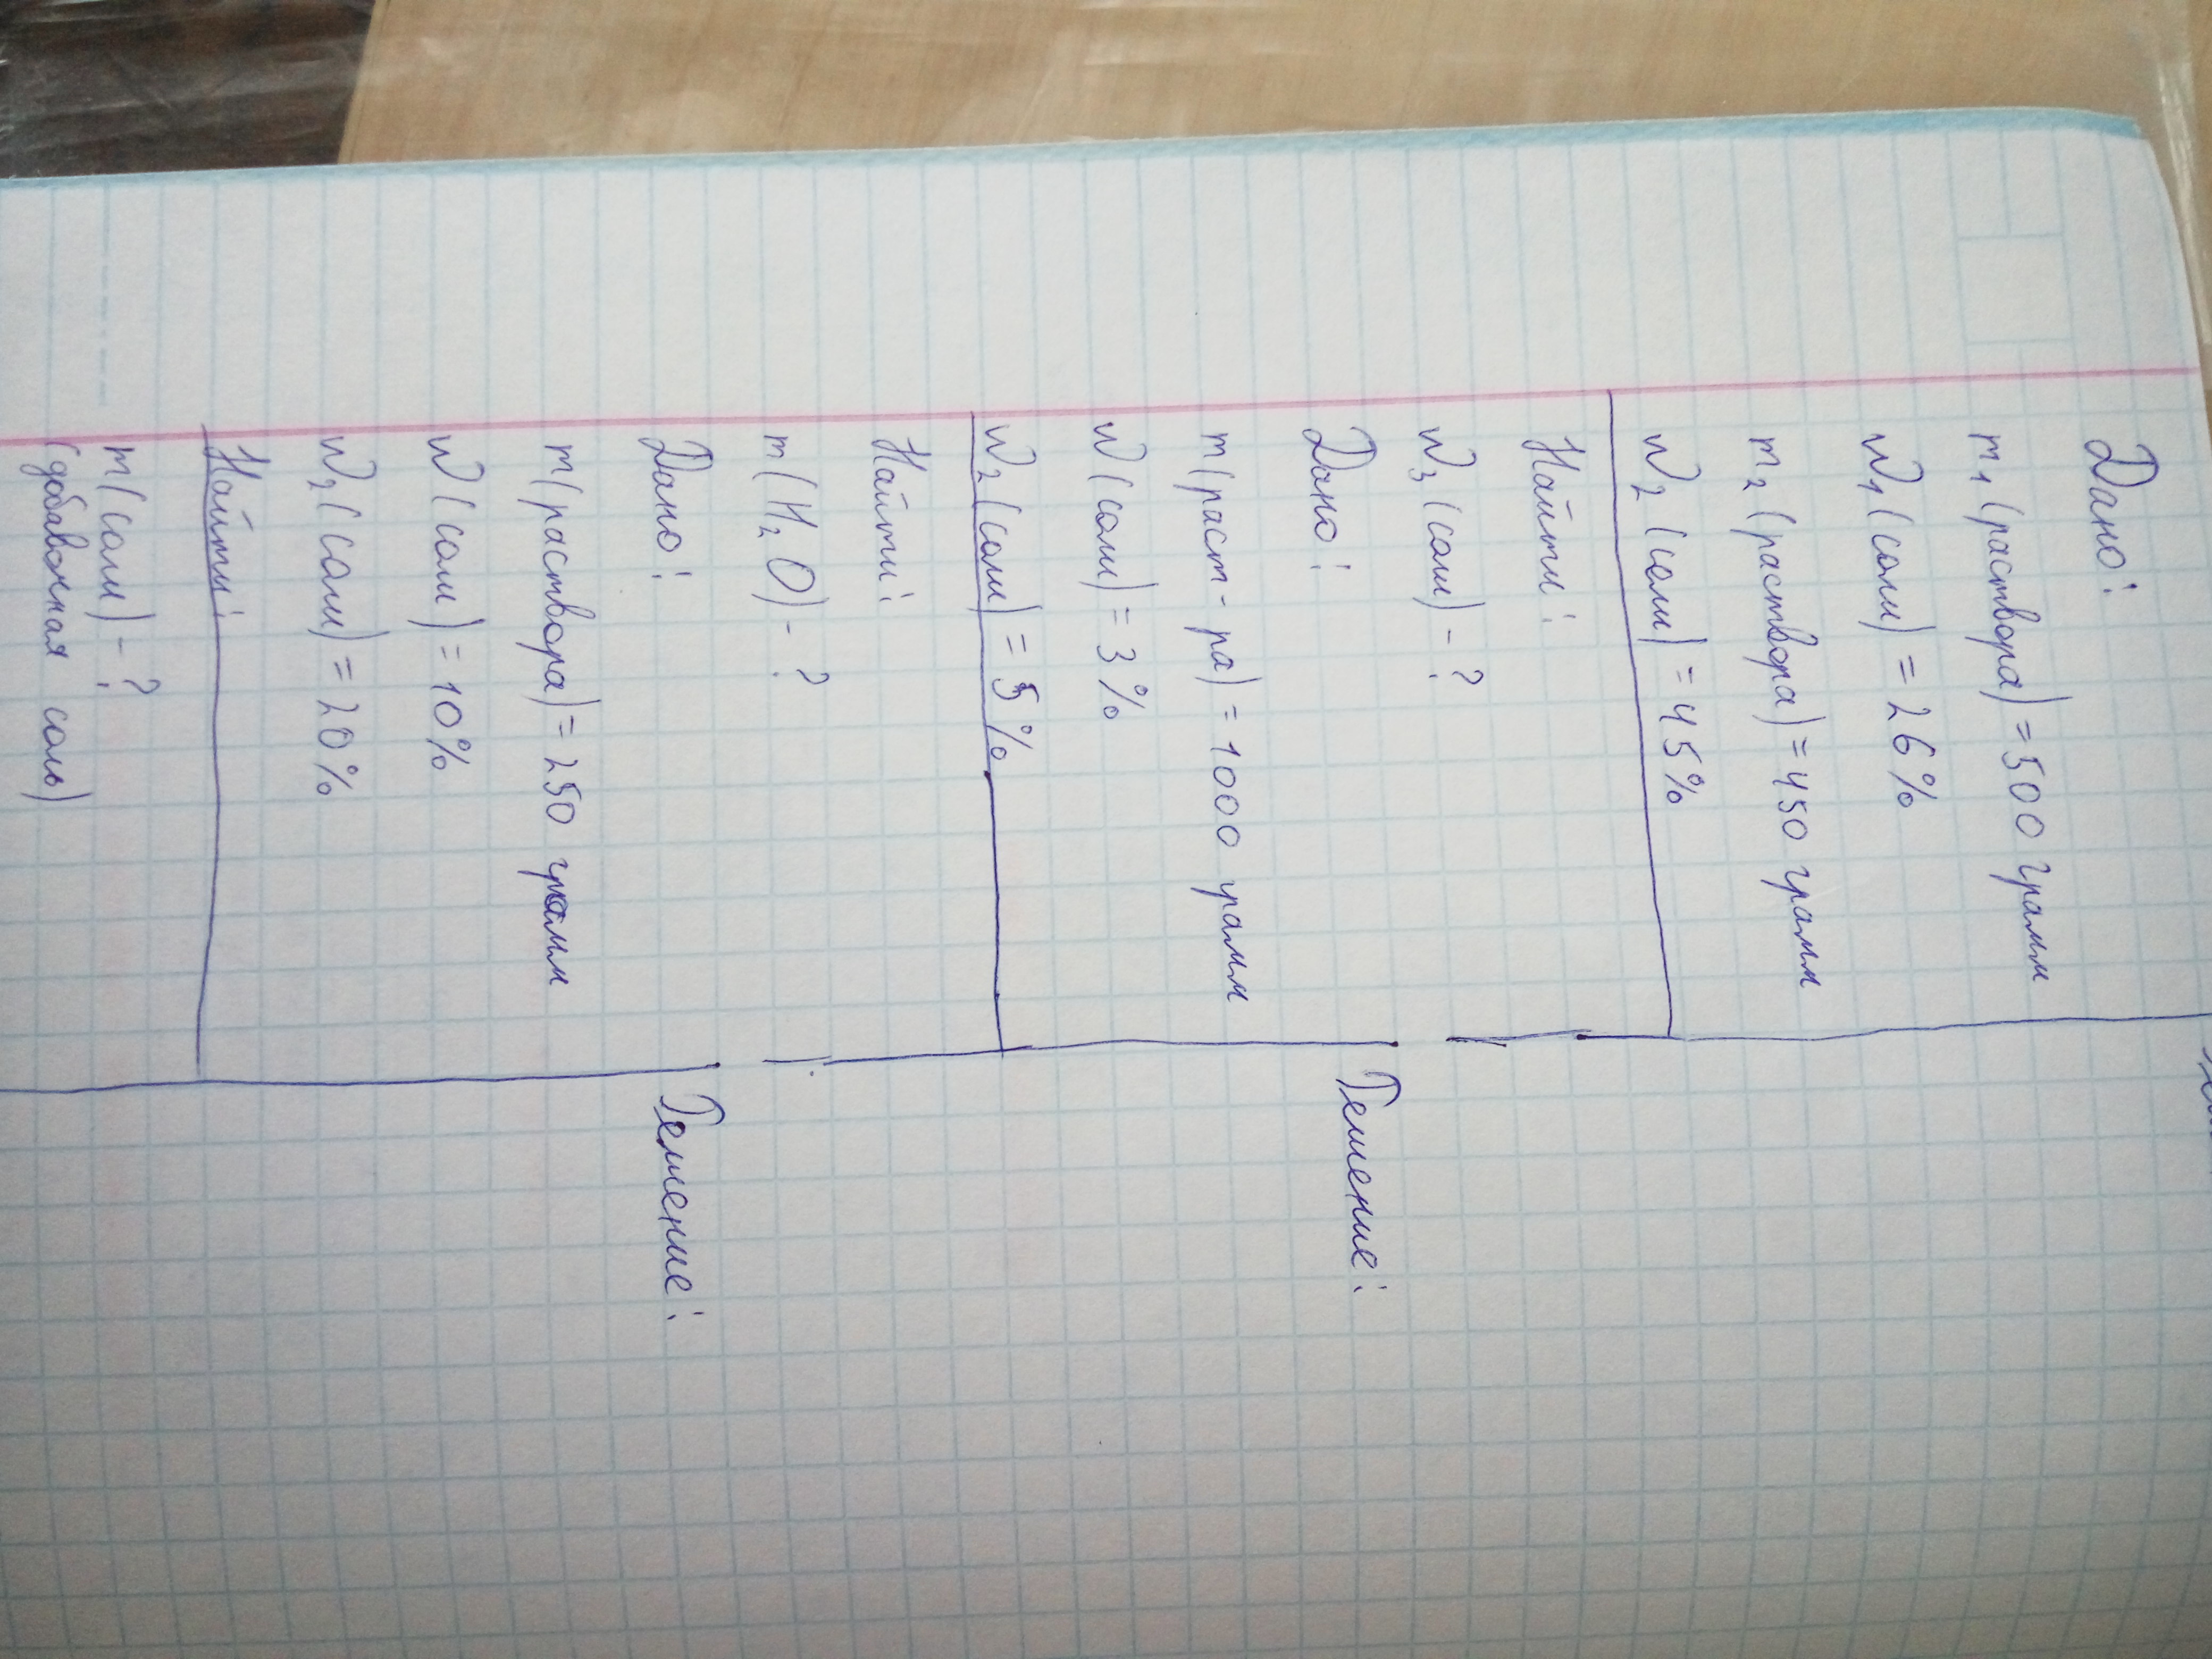 Дано:
m₁ (раствора) = 500 грамм
w₁ (соли) = 26%
m₂ (раствора) = 450 грамм
w₂ (соли) = 45%
Найти:
w₃ (соли) - ?
Дано:
Решение:
m (раст-ра) = 1000 грамм
w (соли) = 3%
w₂ (соли) = 5%
Найти:
m (H₂O) - ?
Дано:
Решение:
m (раствора) = 250 грамм
w (соли) = 10%
w₂ (соли) = 20%
Найти:
m (соли) - ?
(добавочная соль)